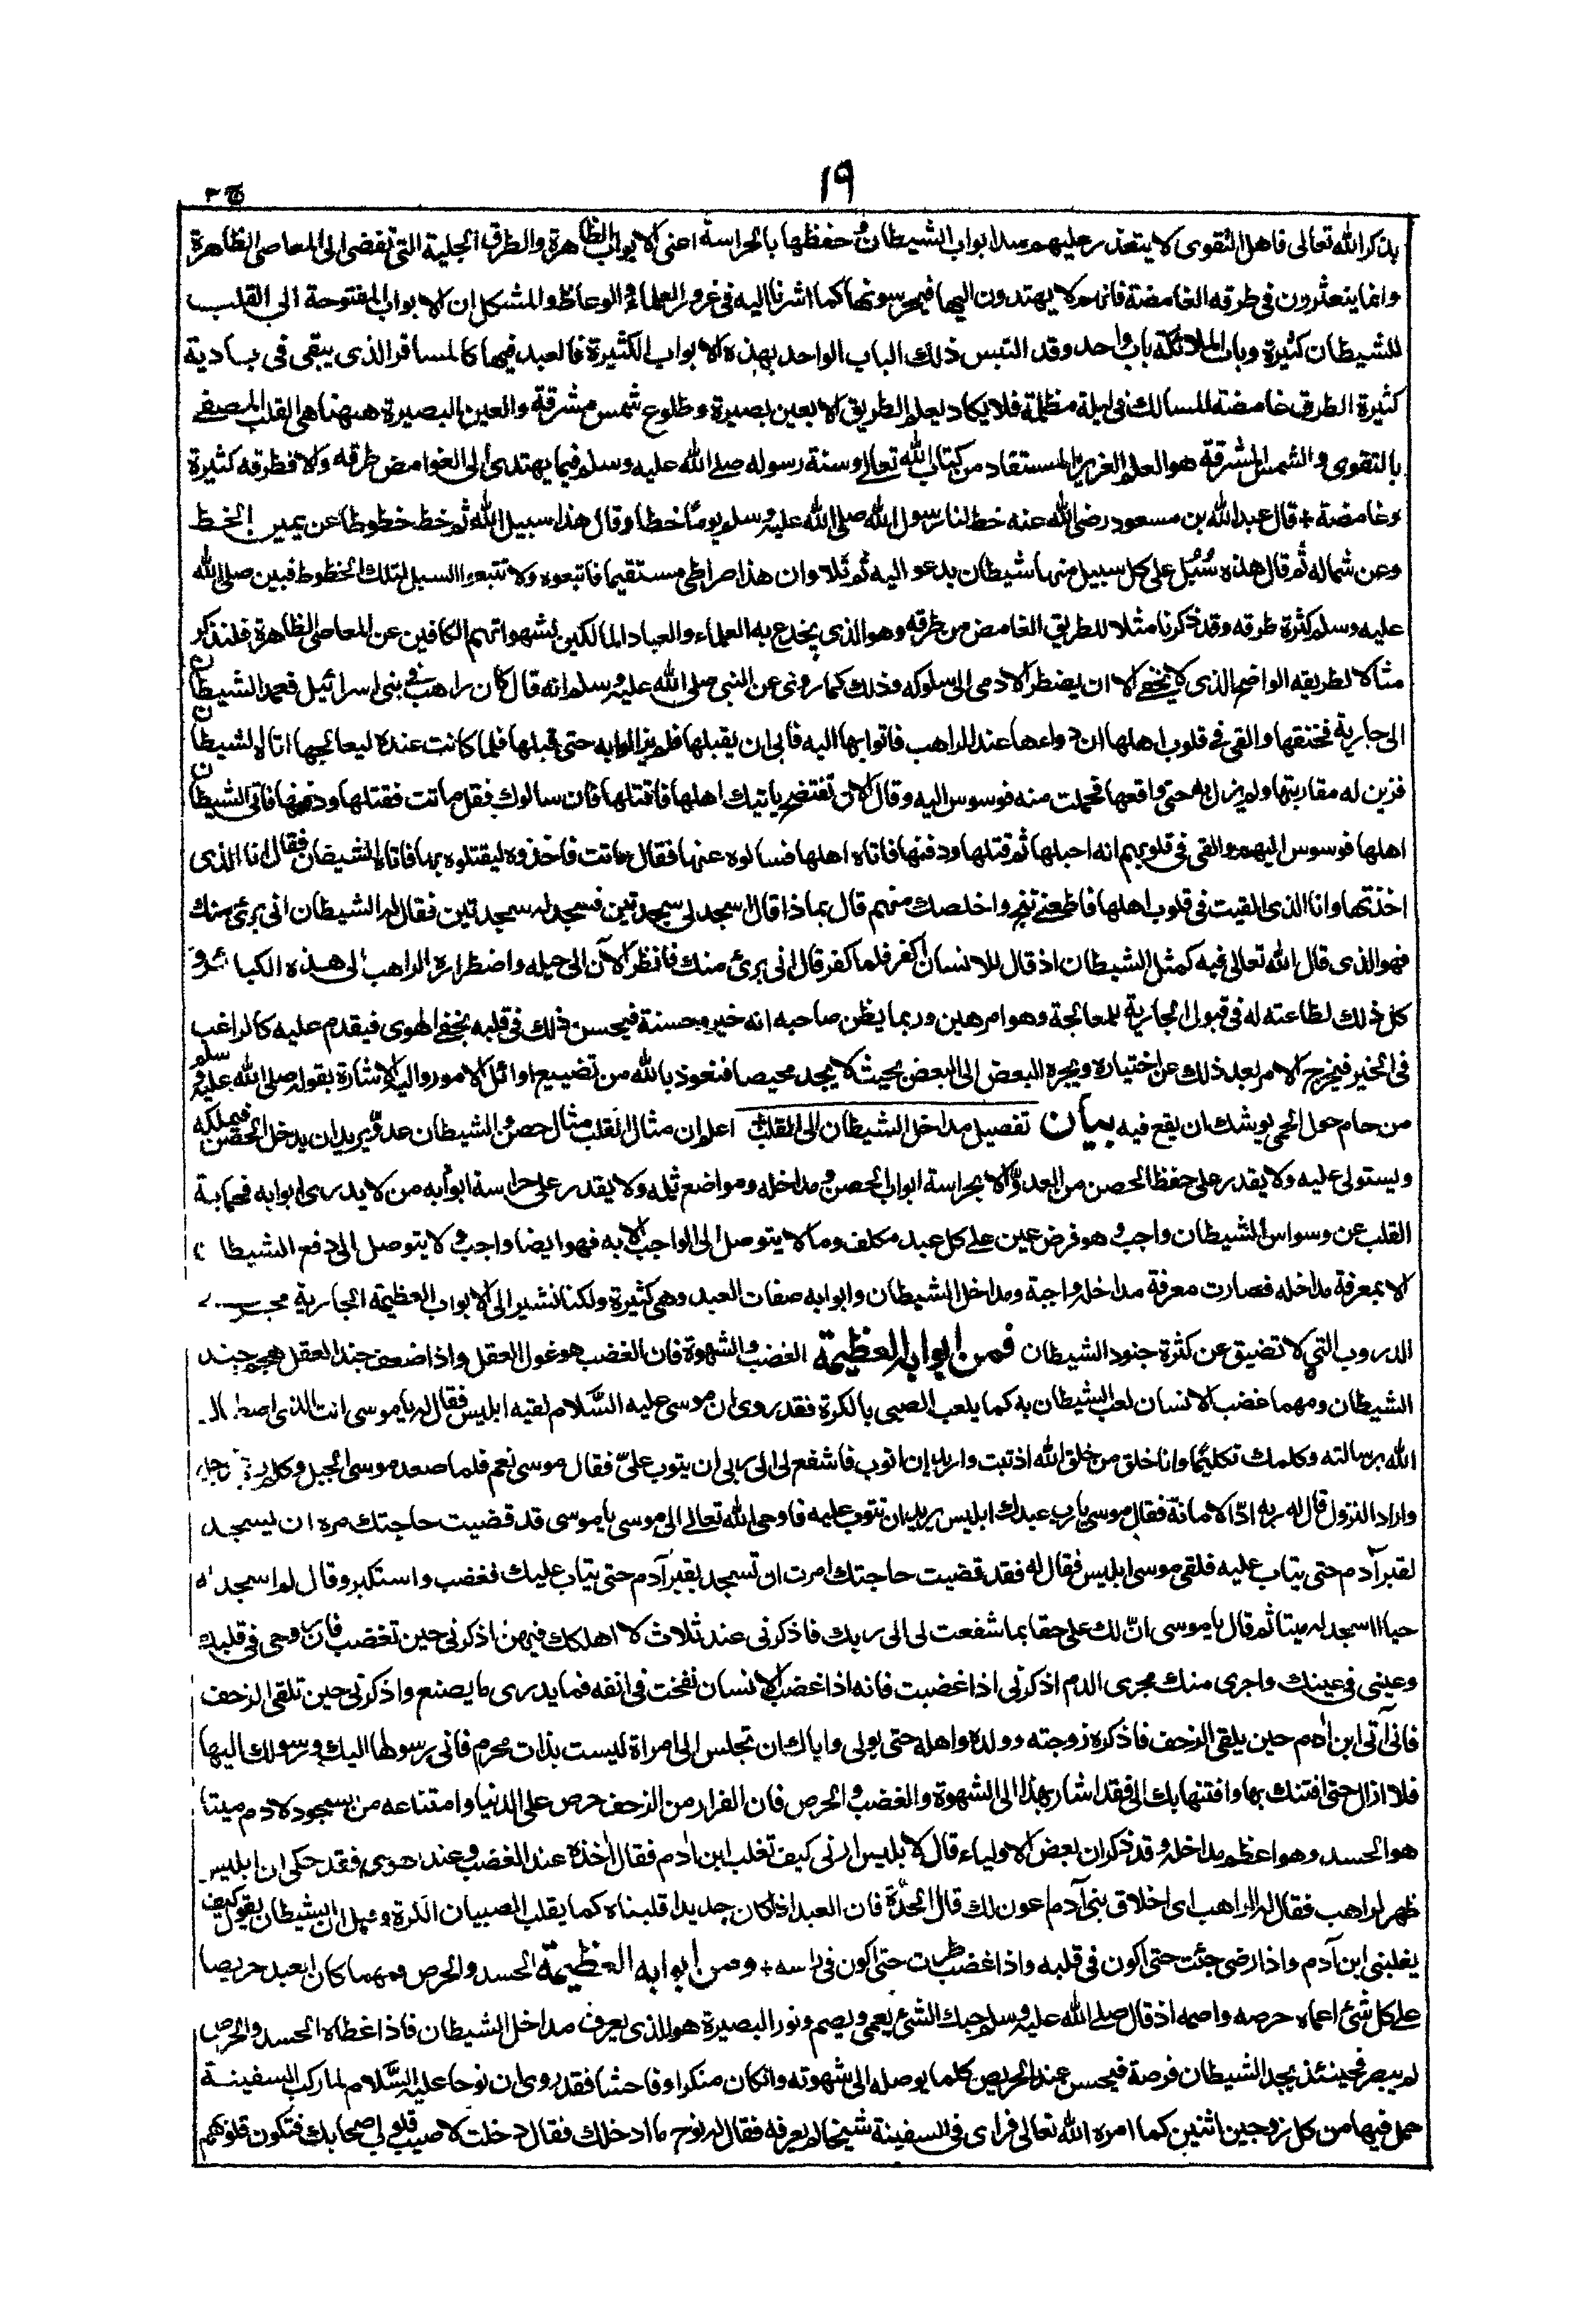 ١٩
ج ٣
بذكر الله تعالى فاهل التقوى لا يتعذر عليهم سد ابواب الشيطان وحفظها بالحراسة اعنى الابواب الظاهرة والطرق الجلية التى تفضى الى المعاصى الظاهرة
وانما يتعثرون فى طرقه الغامضة فانهم لا يهتدون اليها فيحرسونها كما اشرنا اليه فى غرور العلماء والوعاظ والمشكل ان الابواب المفتوحة الى القلب
للشيطان كثيرة وباب الملائكة باب واحد وقد التبس ذلك الباب الواحد بهذه الابواب الكثيرة فالعبد فيها كالمسافر الذى يبقى فى بادية
كثيرة الطرق غامضة المسالك فى ليلة مظلمة فلا يكاد يعلم الطريق الا بعين بصيرة وطلوع شمس مشرقة والعين البصيرة ههنا هى القلب المصفى
بالتقوى والشمس المشرقة هو العلم الغزير المستفاد من كتاب الله تعالى وسنة رسوله صلى الله عليه وسلم فيما يهتدى الى الغوامض طرقه والا فطرقه كثيرة
وغامضة + قال عبد الله بن مسعود رضى الله عنه خط لنا رسول الله صلى الله عليه وسلم يوما خطا وقال هذا سبيل الله ثم خط خطوطا عن يمين الخط
وعن شماله ثم قال هذه سُبُل على كل سبيل منها شيطان يدعو اليه ثم تلا وان هذا صراطى مستقيما فاتبعوه ولا تتبعوا السبل لتلك الخطوط فبين صلى الله
عليه وسلم كثرة طرقه وقد ذكرنا مثلا للطريق الغامض من طرقه وهو الذى يخدع به العلماء والعباد المالكين لشهواتهم الكافين عن المعاصى الظاهرة فلنذكر
مثالا لطريقه الواضح الذى لا يخفى الا ان يضطر الادمى الى سلوكه وذلك كما روى عن النبى صلى الله عليه وسلم انه قال كان راهب فى بنى اسرائيل فعمد الشيطان
الى جارية فخنقها والقى فى قلوب اهلها ان دواءها عند الراهب فاتوا بها اليه فابى ان يقبلها فلم يزالوا به حتى قبلها فلما كانت عنده ليعالجها اتاه الشيطان
فزين له مقاربتها ولم يزل به حتى واقعها فحملت منه فوسوس اليه وقال الان تفتضح ياتيك اهلها فاقتلها فان سالوك فقل ماتت فقتلها ودفنها فاتى الشيطان
اهلها فوسوس اليهم والقى فى قلوبهم انه احبلها ثم قتلها ودفنها فاتاه اهلها فسالوه عنها فقال ماتت فاخذوه ليقتلوه بها فاتاه الشيطان فقال انا الذى
اخذتها وانا الذى القيت فى قلوب اهلها فاطعنى تنج واخلصك منهم قال بماذا قال اسجد لى سجدتين فسجد له سجدتين فقال له الشيطان انى برئ منك
فهو الذى قال الله تعالى فيه كمثل الشيطان اذ قال للانسان اكفر فلما كفر قال انى برئ منك فانظر الآن الى حيله واضطراره الراهب الى هذه الكبائر و
كل ذلك لطاعته له فى قبول الجارية للمعالجة وهو امر هين وربما يظن صاحبه انه خير وحسنة فيحسن ذلك فى قلبه بخفى الهوى فيقدم عليه كالراغب
فى الخير فيخرج الامر بعد ذلك عن اختياره ويجره البعض الى البعض بحيث لا يجد محيصا فنعوذ بالله من تضييع اوائل الامور واليه الاشارة بقوله صلى الله عليه وسلم
من حام حول الحمى يوشك ان يقع فيه بيان تفصيل مداخل الشيطان الى القلب اعلم ان مثال القلب مثال حصن والشيطان عدو يريد ان يدخل الحصن فيملكه
ويستولى عليه ولا يقدر على حفظ الحصن من العدو الا بحراسة ابواب الحصن ومداخله ومواضع ثلمه ولا يقدر على حراسة ابوابه من لا يدرى ابوابه فحماية
القلب عن وسواس الشيطان واجب وهو فرض عين على كل عبد مكلف وما لا يتوصل الى الواجب الا به فهو ايضا واجب ولا يتوصل الى دفع الشيطان
الا بمعرفة مداخله فصارت معرفة مداخله واجبة ومداخل الشيطان وابوابه صفات العبد وهى كثيرة ولكنا نشير الى الابواب العظيمة الجارية مجرى
الدروب التى لا تضيق عن كثرة جنود الشيطان فمن ابوابه العظيمة الغضب والشهوة فان الغضب هو غول العقل واذا ضعف جند العقل هجم جند
الشيطان ومهما غضب الانسان لعب الشيطان به كما يلعب الصبى بالكرة فقد روى ان موسى عليه السَّلام لقيه ابليس فقال له يا موسى انت الذى اصطفاك
الله برسالته وكلمك تكليما وانا خلق من خلق الله اذنبت واريد ان اتوب فاشفع لى الى ربى ان يتوب علىّ فقال موسى نعم فلما صعد موسى الجبل وكلم ربه عز وجل
واراد النزول قال له ربه ادّ الامانة فقال موسى يا رب عبدك ابليس يريد ان تتوب عليه فاوحى الله تعالى الى موسى يا موسى قد قضيت حاجتك مره ان يسجد
لقبر آدم حتى يتاب عليه فلقى موسى ابليس فقال له فقد قضيت حاجتك امرت ان تسجد لقبر آدم حتى يتاب عليك فغضب واستكبر وقال لم اسجد له
حيا ااسجد له ميتا ثم قال يا موسى انّ لك على حقا بما شفعت لى الى ربك فاذكرنى عند ثلاث لا اهلكك فيهن اذكرنى حين تغضب فان روحى فى قلبك
وعينى فى عينك واجرى منك مجرى الدم اذكرنى اذا غضبت فانه اذا غضب الانسان نفخت فى انفه فما يدرى ما يصنع واذكرنى حين تلقى الزحف
فانى آتى ابن آدم حين يلقى الزحف فاذكره زوجته وولده واهله حتى يولى واياك ان تجلس الى امراة ليست بذات محرم فانى رسولها اليك ورسولك اليها
فلا ازال حتى افتنك بها وافتنها بك الى فقد اشار بهذا الى الشهوة والغضب والحرص فان الفرار من الزحف حرص على الدنيا وامتناعه من السجود لادم ميتا
هو الحسد وهو اعظم مداخله وقد ذكر ان بعض الاولياء قال لابليس ارنى كيف تغلب ابن آدم فقال آخذه عند الغضب وعند الهوى فقد حكى ان ابليس
ظهر لراهب فقال له الراهب اى اخلاق بنى آدم اعون لك قال الحدّة فان العبد اذا كان حديدا قلبناه كما يقلب الصبيان الكرة وقيل ان الشيطان يقول كيف
يغلبنى ابن آدم واذا رضى جئت حتى اكون فى قلبه واذا غضب طرت حتى اكون فى راسه + ومن ابوابه العظيمة الحسد والحرص ومهما كان العبد حريصا
على كل شئ اعماه حرصه واصمه اذ قال صلى الله عليه وسلم حبك الشئ يعمى ويصم ونور البصيرة هو الذى يعرف مداخل الشيطان فاذا غطاه الحسد والحرص
لم يبصر فحينئذ يجد الشيطان فرصة فيحسن عند الحريص كلما يوصله الى شهوته وان كان منكرا وفاحشا فقد روى ان نوحا عليه السَّلام لما ركب السفينة
حمل فيها من كل زوجين اثنين كما امره الله تعالى فراى فى السفينة شيخا لم يعرفه فقال له نوح ما ادخلك فقال دخلت لاصيب قلوب اصحابك فتكون قلوبهم